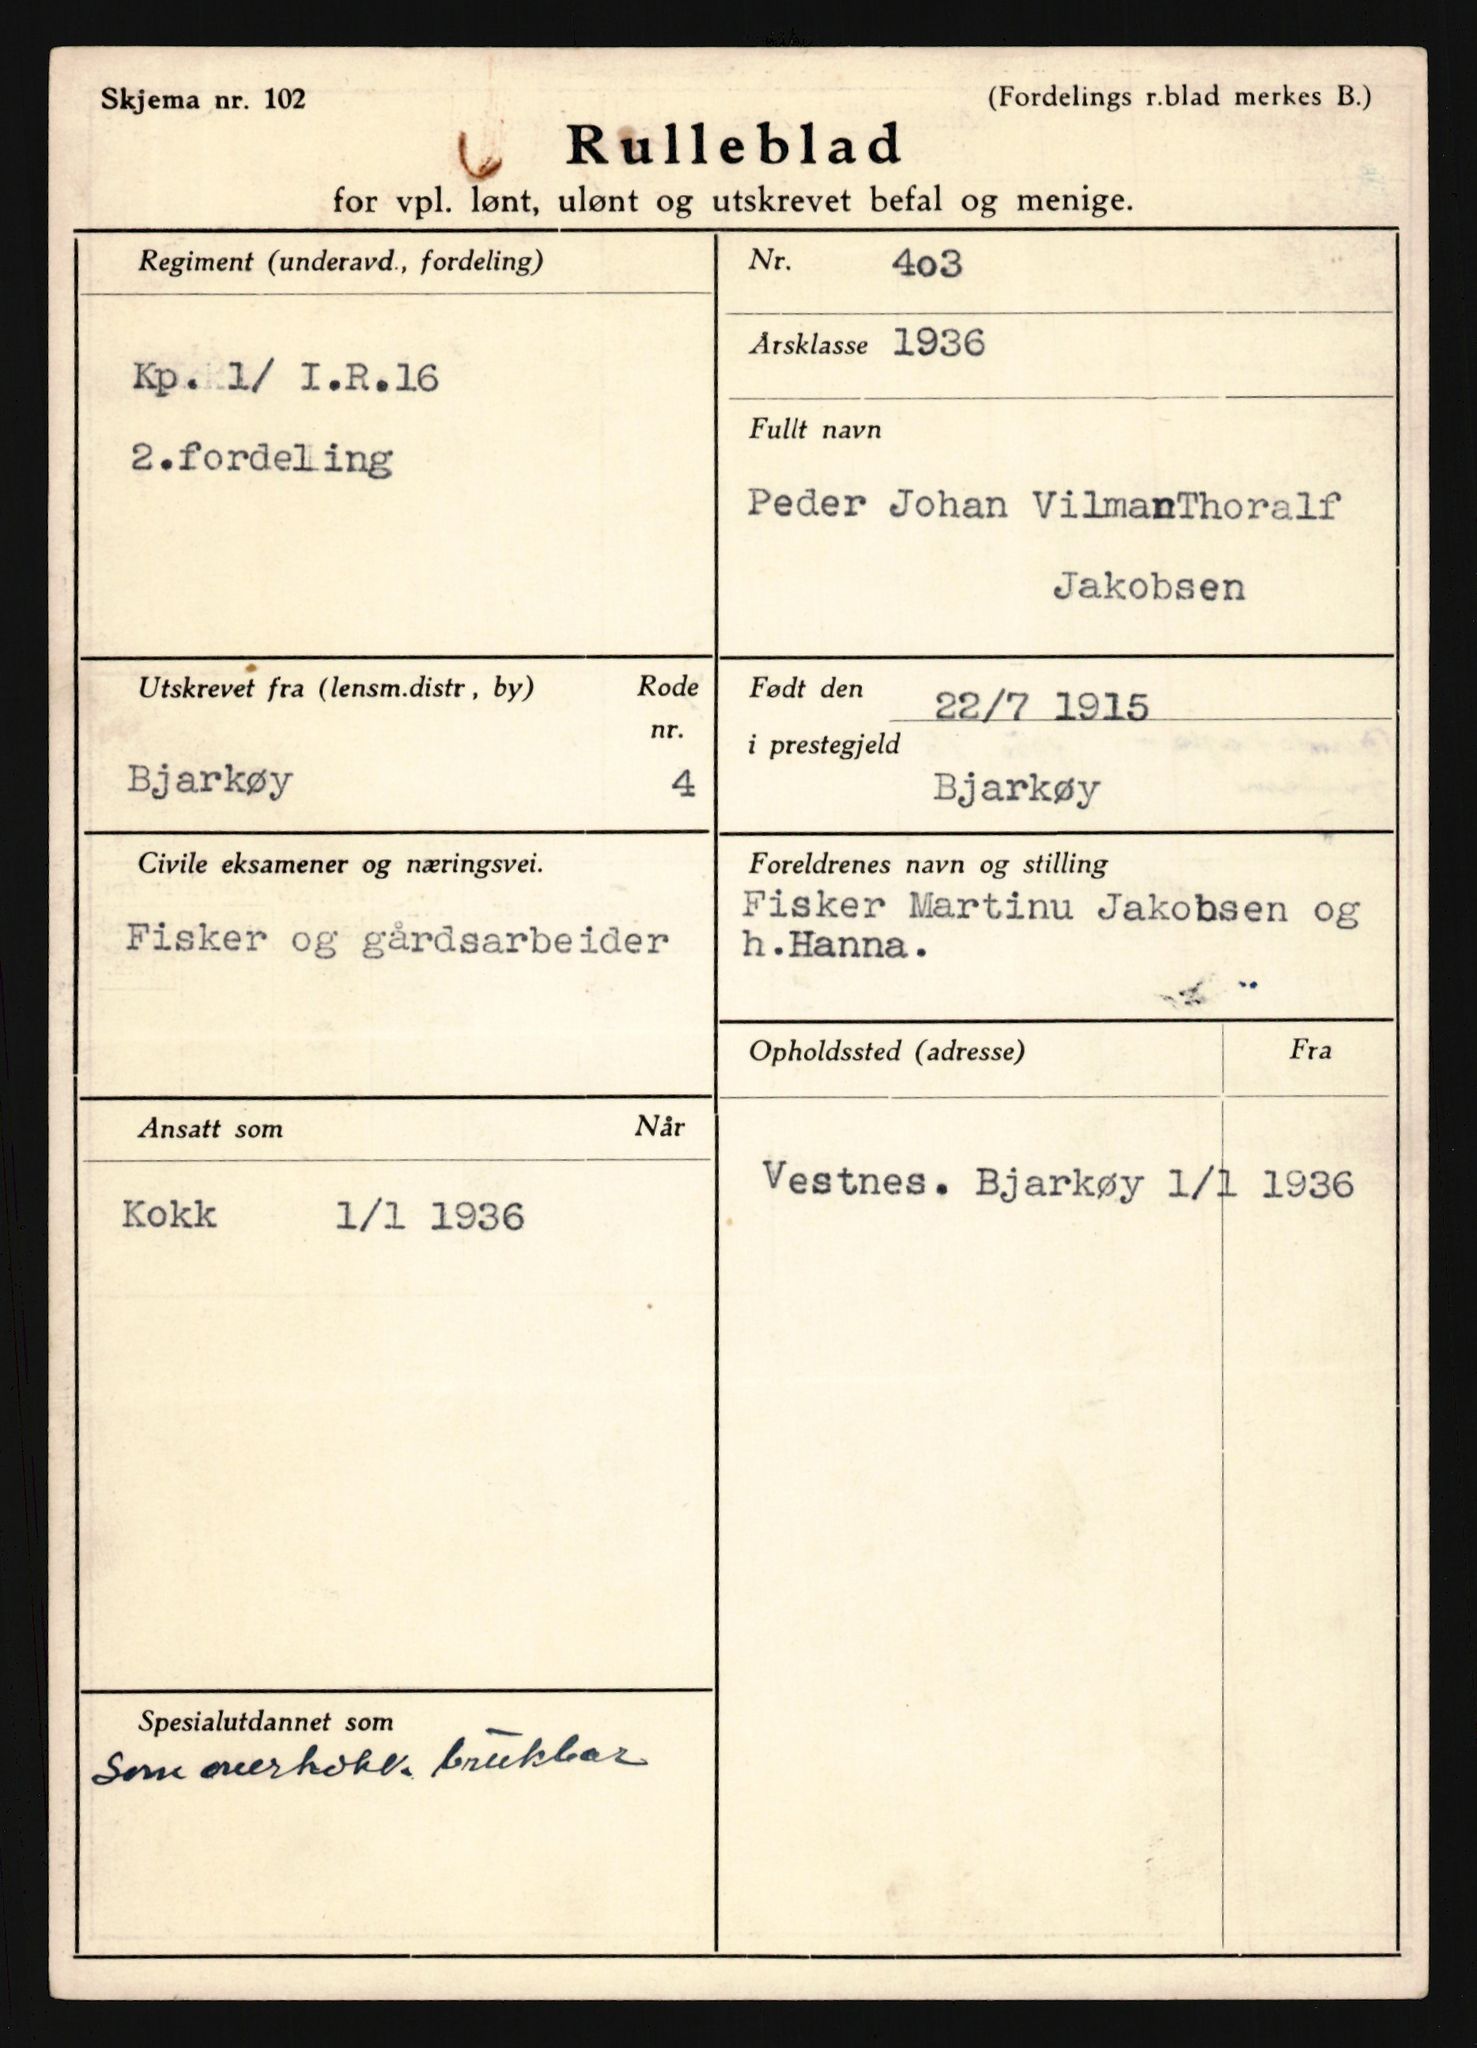 Skjema nr. 102
(Fordelings r.blad merkes B.)
Rulleblad
for vpl. lønt, ulønt og utskrevet befal og menige.
Regiment (underavd., fordeling)
Kp. 1/ I.R.16
2.fordeling
Nr. 403
Årsklasse 1936
Fullt navn
Peder Johan VilmanThoralf
Jakobsen
Utskrevet fra (lensm.distr, by) Rode
nr.
Bjarkøy 4
Født den 22/7 1915
i prestegjeld
Bjarkøy
Civile eksamener og næringsvei.
Fisker og gårdsarbeider
Foreldrenes navn og stilling
Fisker Martinu Jakobsen og
h.Hanna.
Ansatt som Når
Kokk 1/1 1936
Opholdssted (adresse) Fra
Vestnes. Bjarkøy 1/1 1936
Spesialutdannet som
Som overkokk brukbar